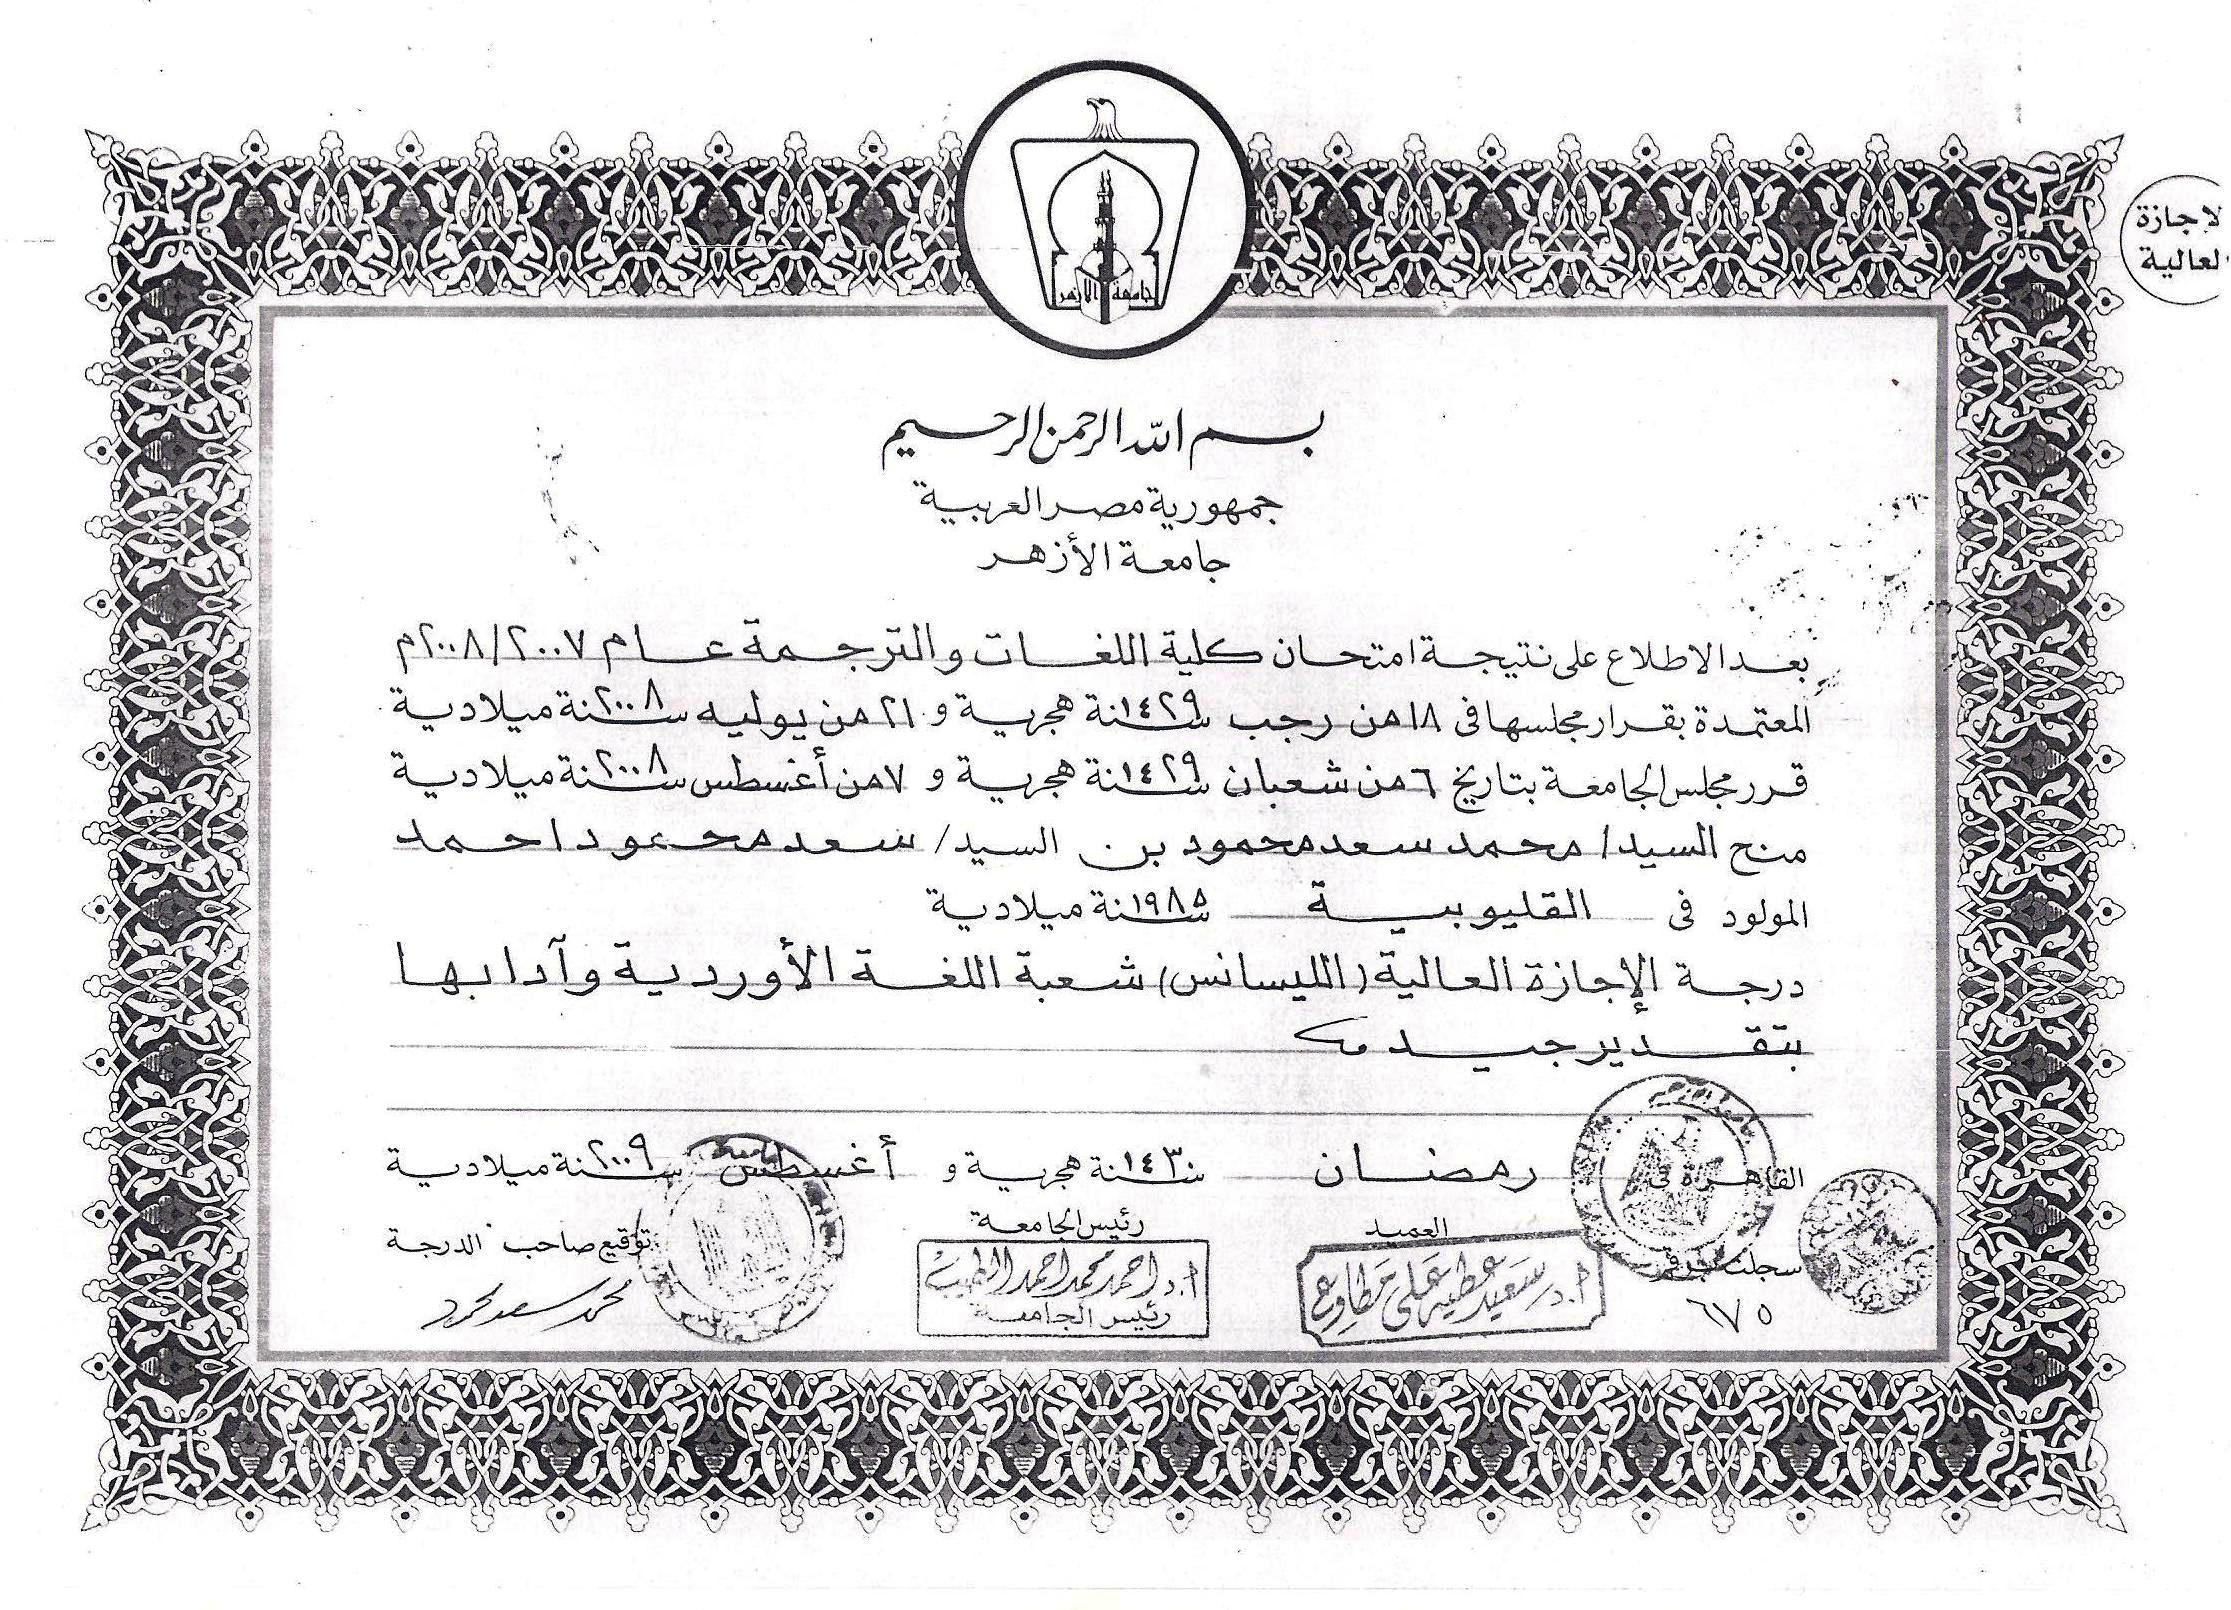 جامعة الأزهر
الاجازة
العالية
بسم الله الرحمن الرحيم
جمهورية مصر العربية
جامعة الأزهر
بعد الاطلاع على نتيجة امتحان كلية اللغات والترجمة عام ٢٠٠٧/٢٠٠٨م
المعتمدة بقرار مجلسها فى ١٨ من رجب سنة ١٤٢٩ هجرية و ٢١ من يوليه سنة ٢٠٠٨ ميلادية
قرر مجلس الجامعة بتاريخ ٦ من شعبان سنة ١٤٢٩ هجرية و ٧ من أغسطس سنة ٢٠٠٨ ميلادية
منح السيد/ محمد سعد محمود بن السيد/ سعد محمود احمد
المولود فى القليوبية سنة ١٩٨٥ ميلادية
درجة الإجازة العالية (الليسانس) شعبة اللغة الأوردية وآدابها
بتقدير جيد
القاهرة فى رمضان سنة ١٤٣٠ هجرية و أغسطس سنة ٢٠٠٩ ميلادية
سجلت برقم العميد رئيس الجامعة توقيع صاحب الدرجة
٦٧٥ أ.د سعيد عطية على مطاوع أ.د احمد محمد احمد الطيب محمد سعد محمود
رئيس الجامعة